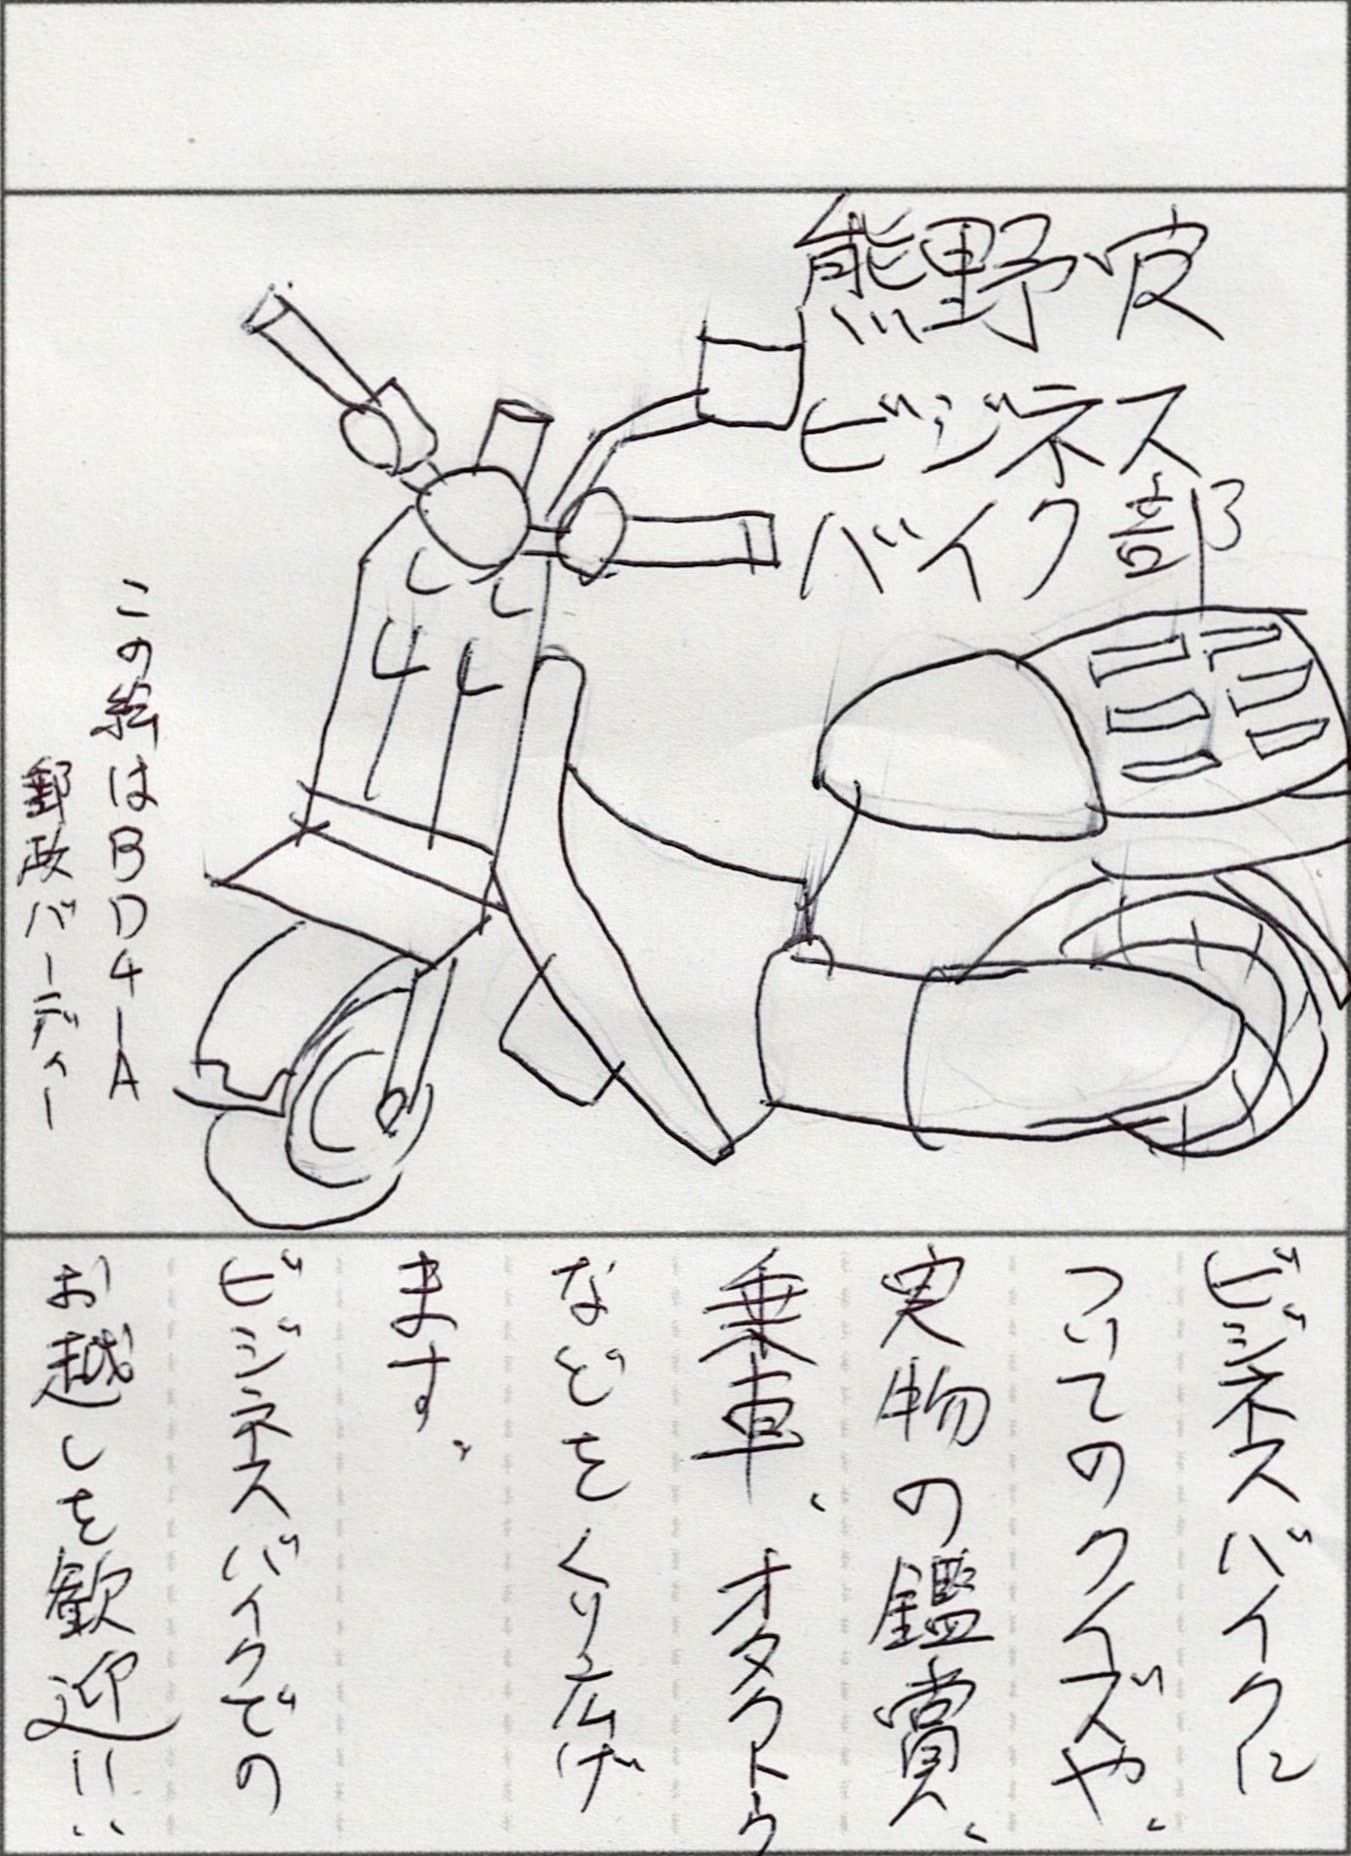 熊野寮
ビジネス
バイク部
この絵はBD41A
郵政バーディー
ビジネスバイクに
ついてのクイズや、
実物の鑑賞、
乗車、オタクトゥ
などをくり広げ
ます。
ビジネスバイクでの
お越しを歓迎!!